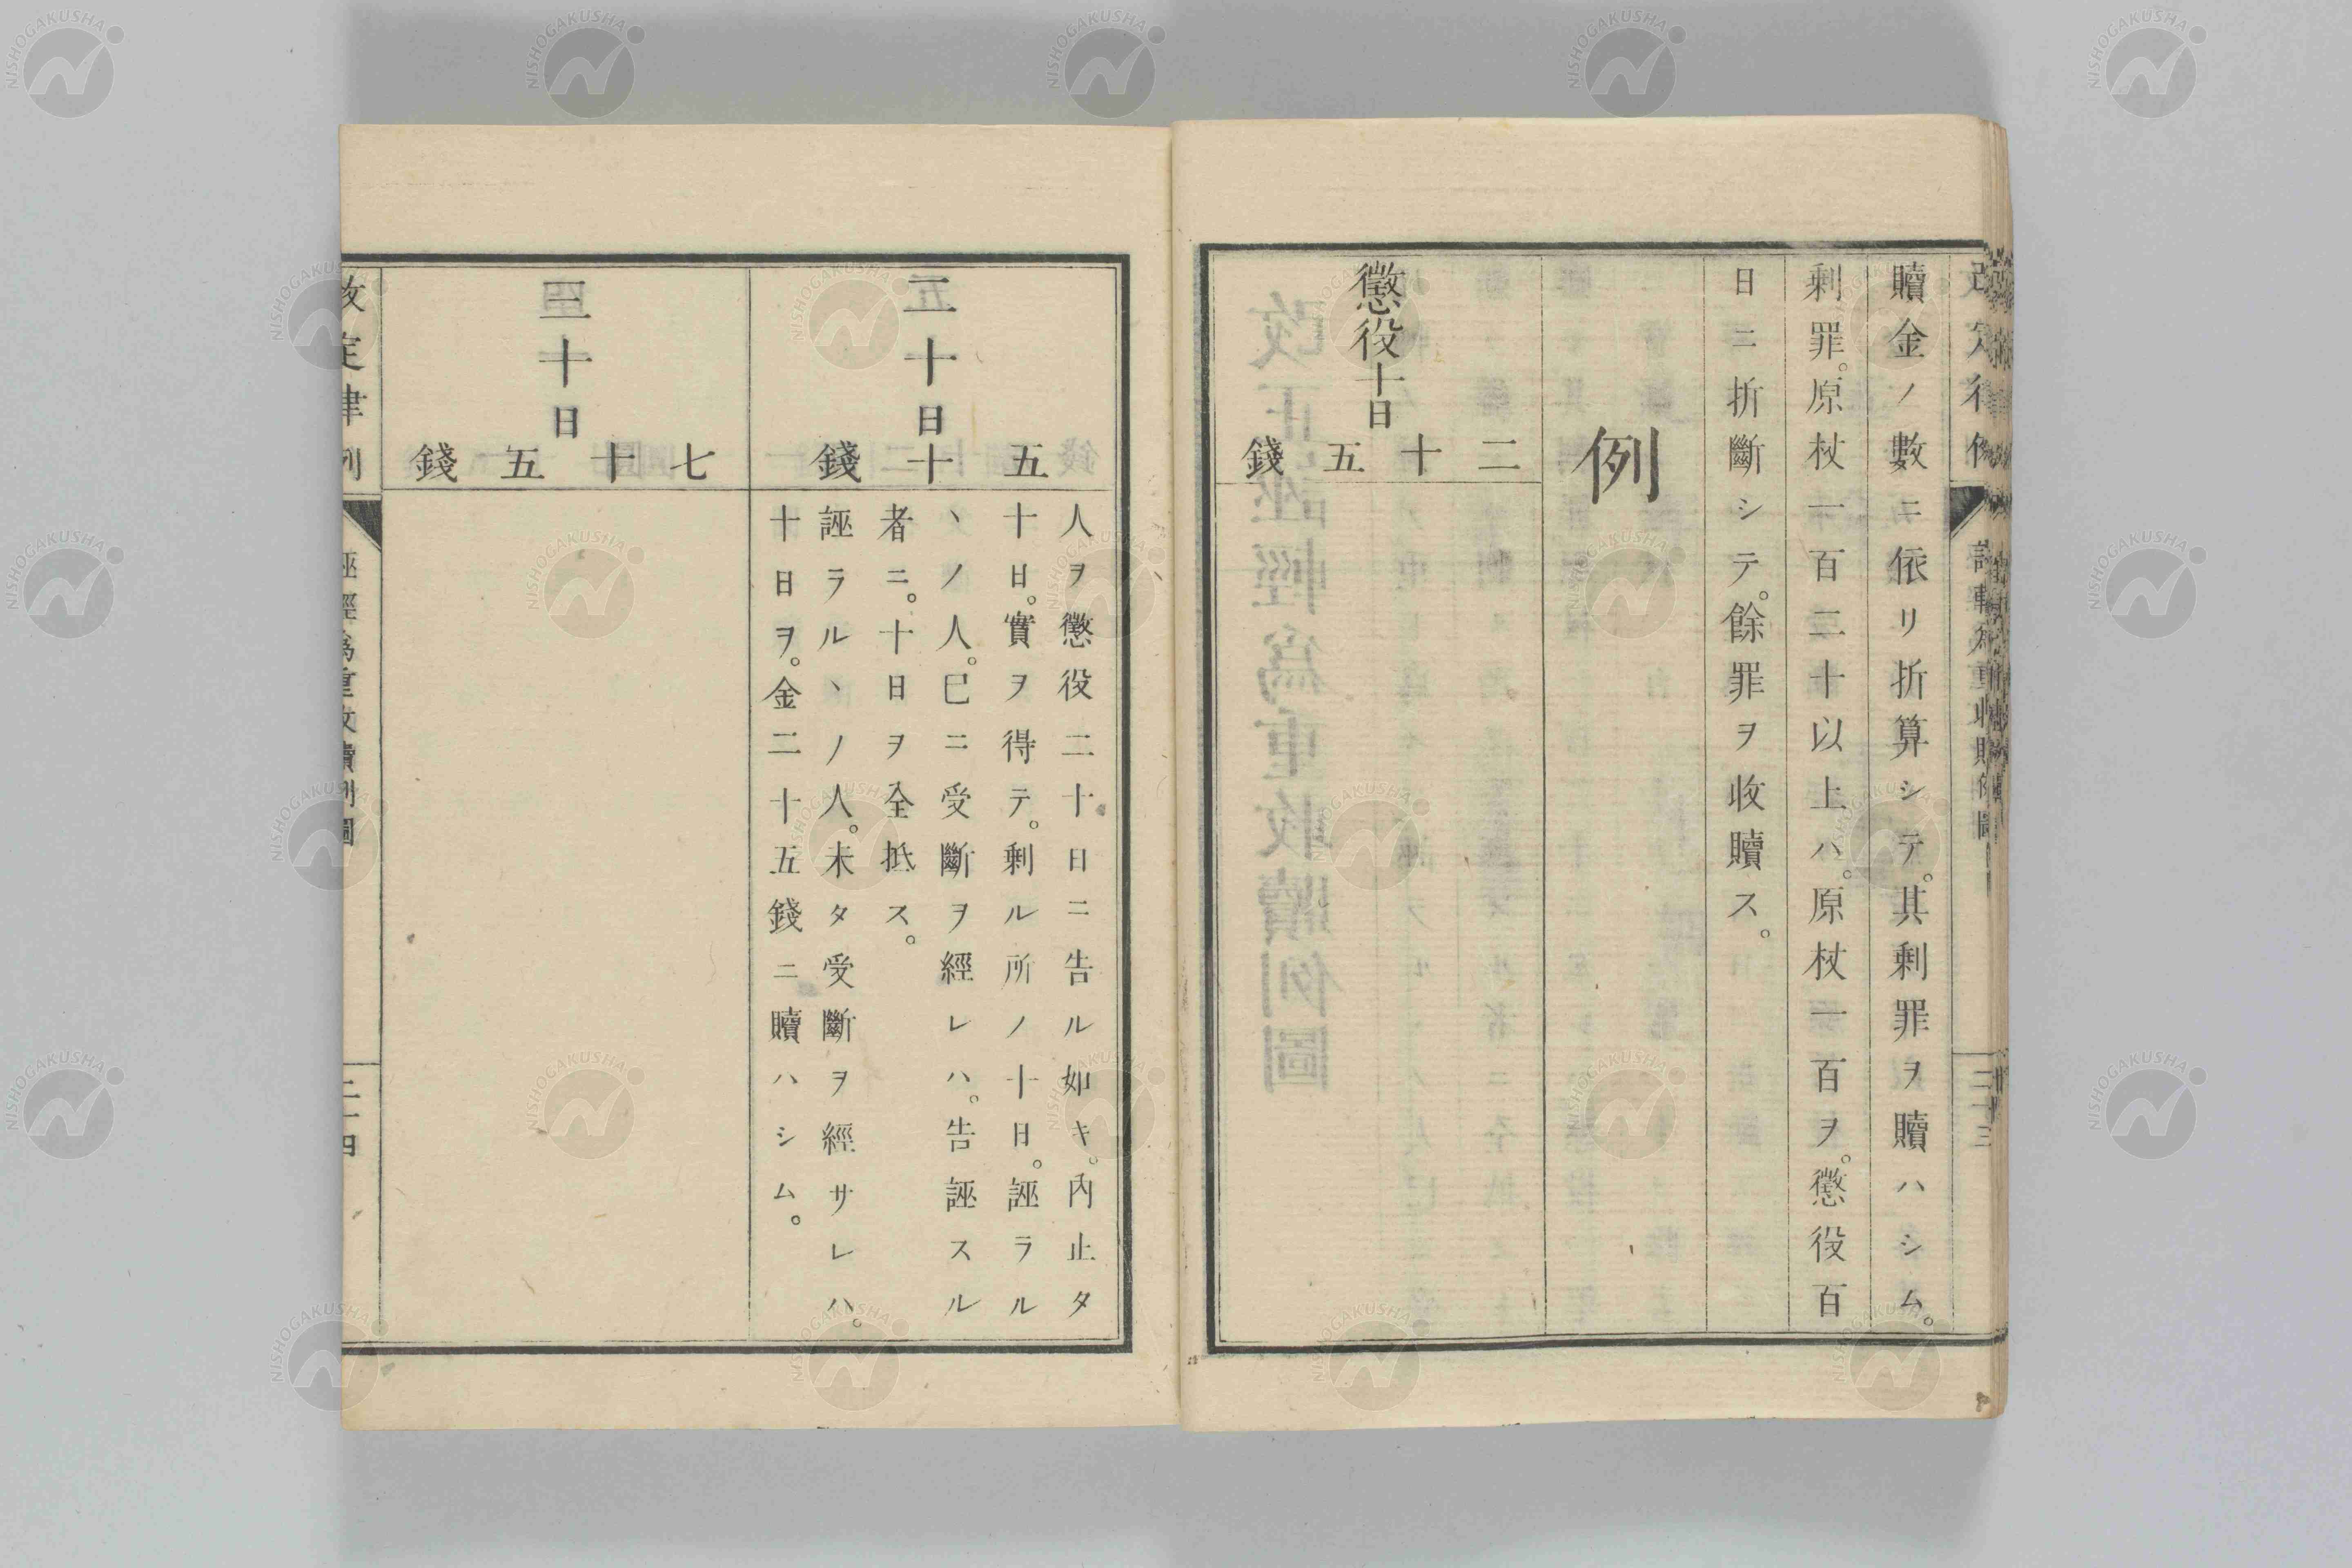 贖金ノ數ニ依リ折算シテ。其剩罪ヲ贖ハシム。
剩罪。原杖一百二十以上ハ。原杖一百ヲ。懲役百
日ニ折斷シテ。餘罪ヲ收贖ス。
例
懲役十日
二十五錢
二十日
五十錢
人ヲ懲役二十日ニ告ル如キ。內止タ
十日。實ヲ得テ。剩ル所ノ十日。誣ラル
丶ノ人。已ニ受斷ヲ經レハ。告誣スル
者ニ。十日ヲ全抵ス。
誣ラル丶ノ人。未タ受斷ヲ經サレハ。
十日ヲ。金二十五錢ニ贖ハシム。
三十日
七十五錢
改定律例
誣輕爲重收贖例圖
二十四
NISHOGAKUSHA